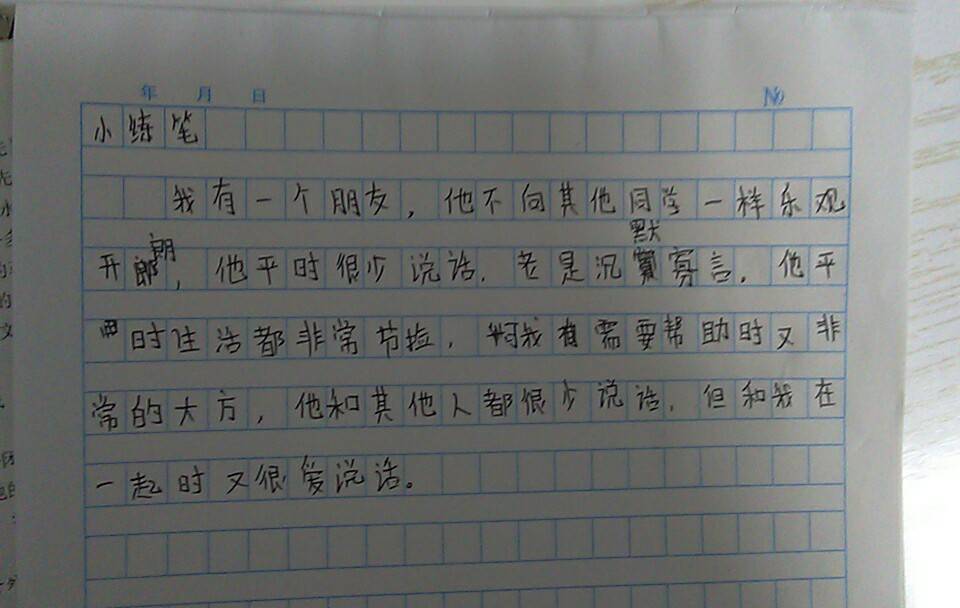 年 月 日 No
小练笔
我有一个朋友，他不向其他同学一样乐观
开朗，他平时很少说话．老是沉默寡言．他平
时生活都非常节捡．我有需要帮助时又非
常的大方，他和其他人都很少说话．但和我在
一起时又很爱说话。